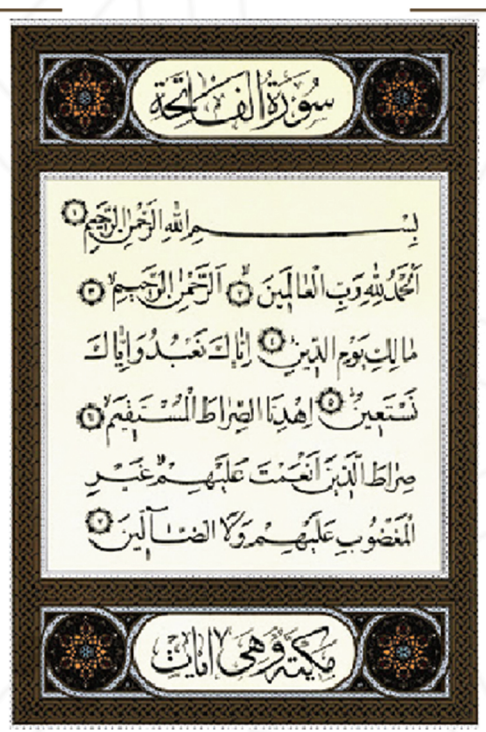 سُورَةُ الْفَاتِحَةِ
بِسْمِ اللّٰهِ الرَّحْمٰنِ الرَّحٖيمِ ﴿١﴾
اَلْحَمْدُ لِلّٰهِ رَبِّ الْعَالَمٖينَ ﴿٢﴾ اَلرَّحْمٰنِ الرَّحٖيمِ ﴿٣﴾
مَالِكِ يَوْمِ الدّٖينِ ﴿٤﴾ اِيَّاكَ نَعْبُدُ وَاِيَّاكَ
نَسْتَعٖينُ ﴿٥﴾ اِهْدِنَا الصِّرَاطَ الْمُسْتَقٖيمَ ﴿٦﴾
صِرَاطَ الَّذٖينَ اَنْعَمْتَ عَلَيْهِمْ غَيْرِ
الْمَغْضُوبِ عَلَيْهِمْ وَلَا الضَّٓالّٖينَ ﴿٧﴾
مَكِّيَّةٌ وَهِيَ ٧ اٰيَاتٍ